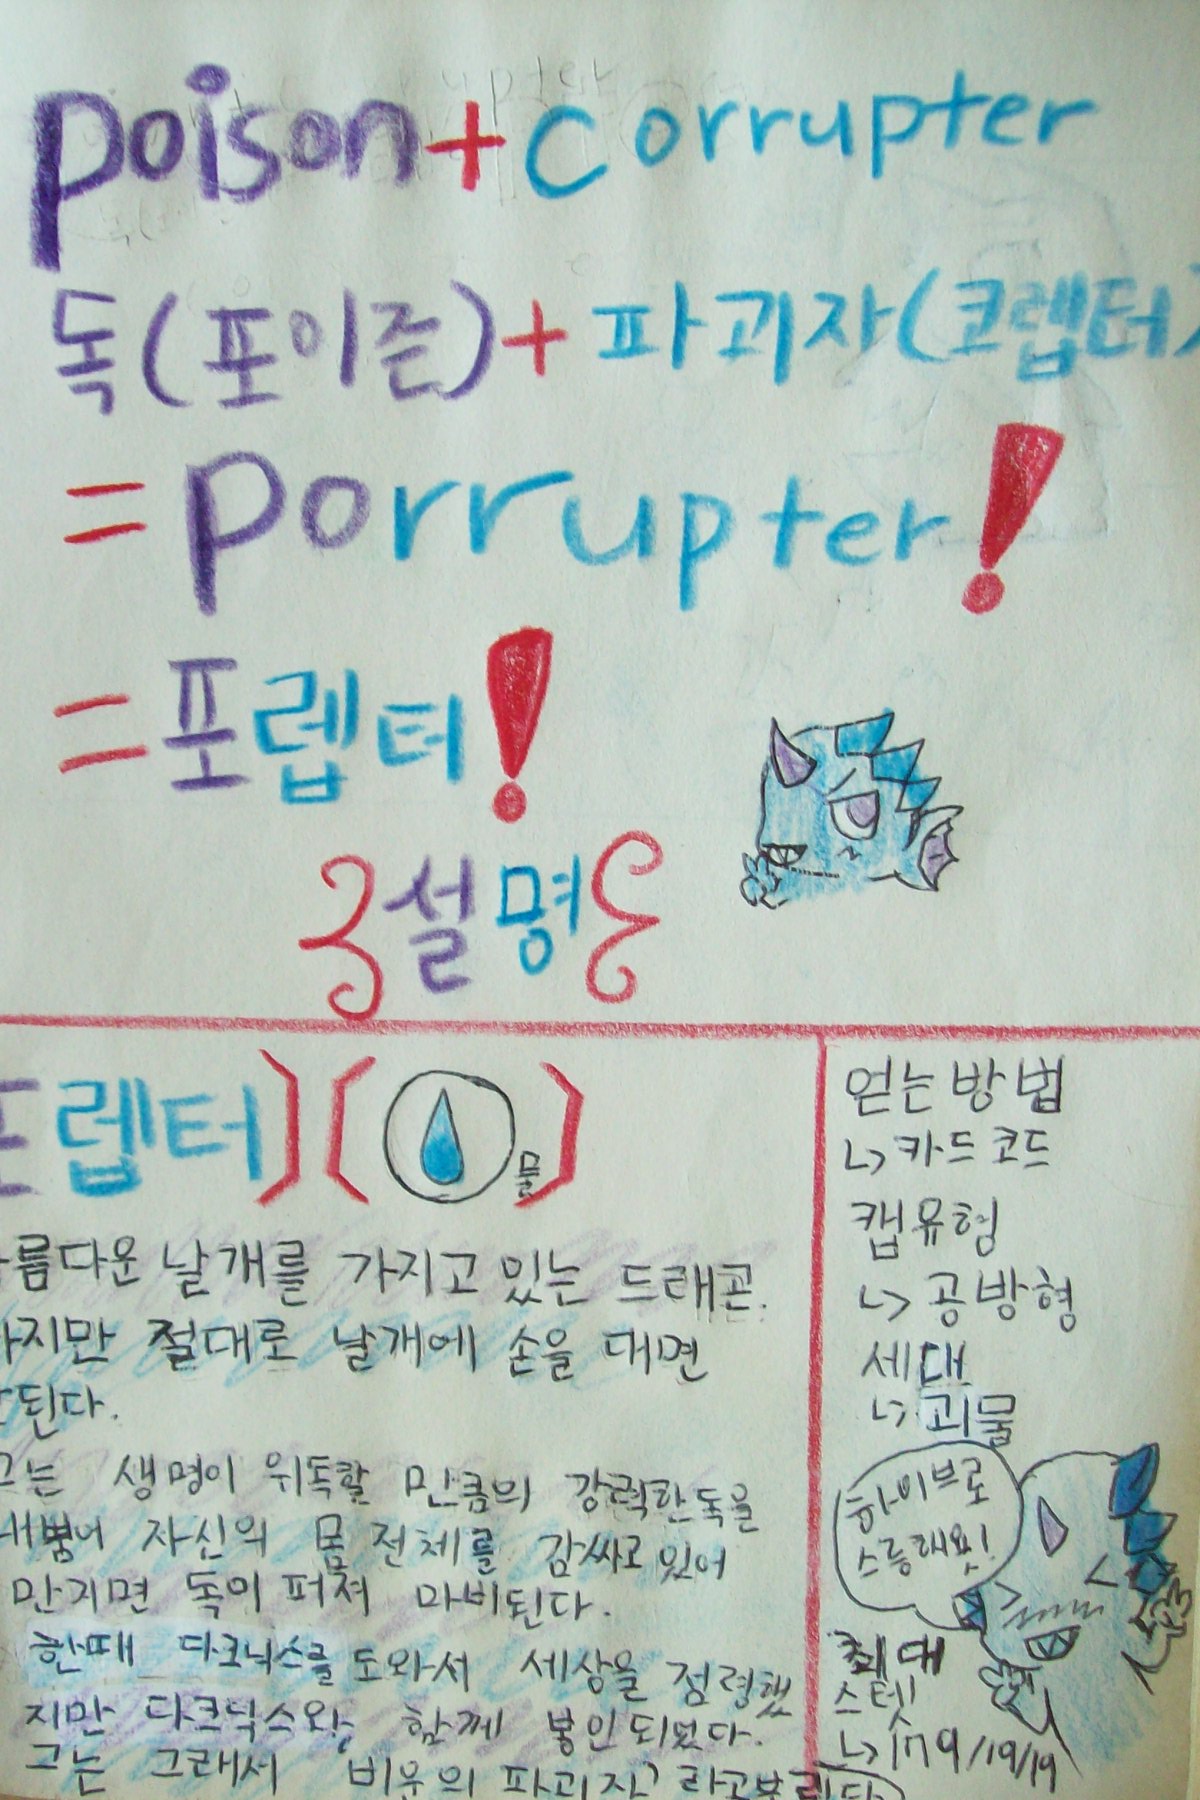 poison+corrupter
독(포이즌)+파괴자(코렙터)
=porrupter!
=포렙터!
설명
포렙터
물
름다운 날개를 가지고 있는 드래곤.
지만 절대로 날개에 손을 대면
된다.
그는 생명이 위독할 만큼의 강력한 독을
내뿜어 자신의 몸 전체를 감싸고 있어
만지면 독이 퍼져 마비된다.
한때 다크닉스를 도와서 세상을 점령했
지만 다크닉스와 함께 봉인되었다.
그는 그래서 비운의 파괴자 라고 불린다
얻는 방법
↳카드코드
캡유형
↳공방형
세대
↳괴물
하이브로
스릉해욧!
최대
스텟
↳179/19/19